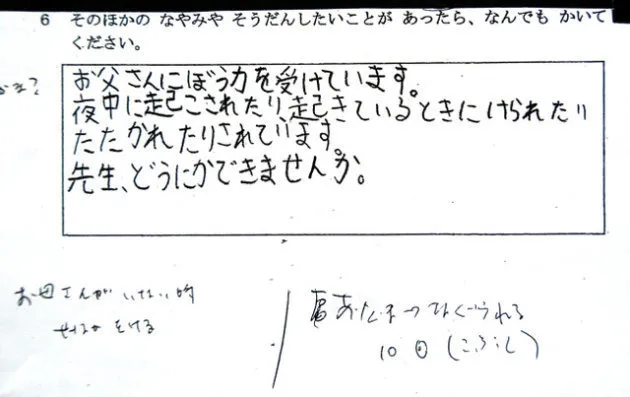 6 そのほかの なやみや そうだんしたいことが あったら、なんでも かいて
ください。
お父さんにぼう力を受けています。
夜中に起こされたり、起きているときにけられたり
たたかれたりされています。
先生、どうにかできませんか。
お母さんがいない時
あたま なぐられる
10回(こぶし)